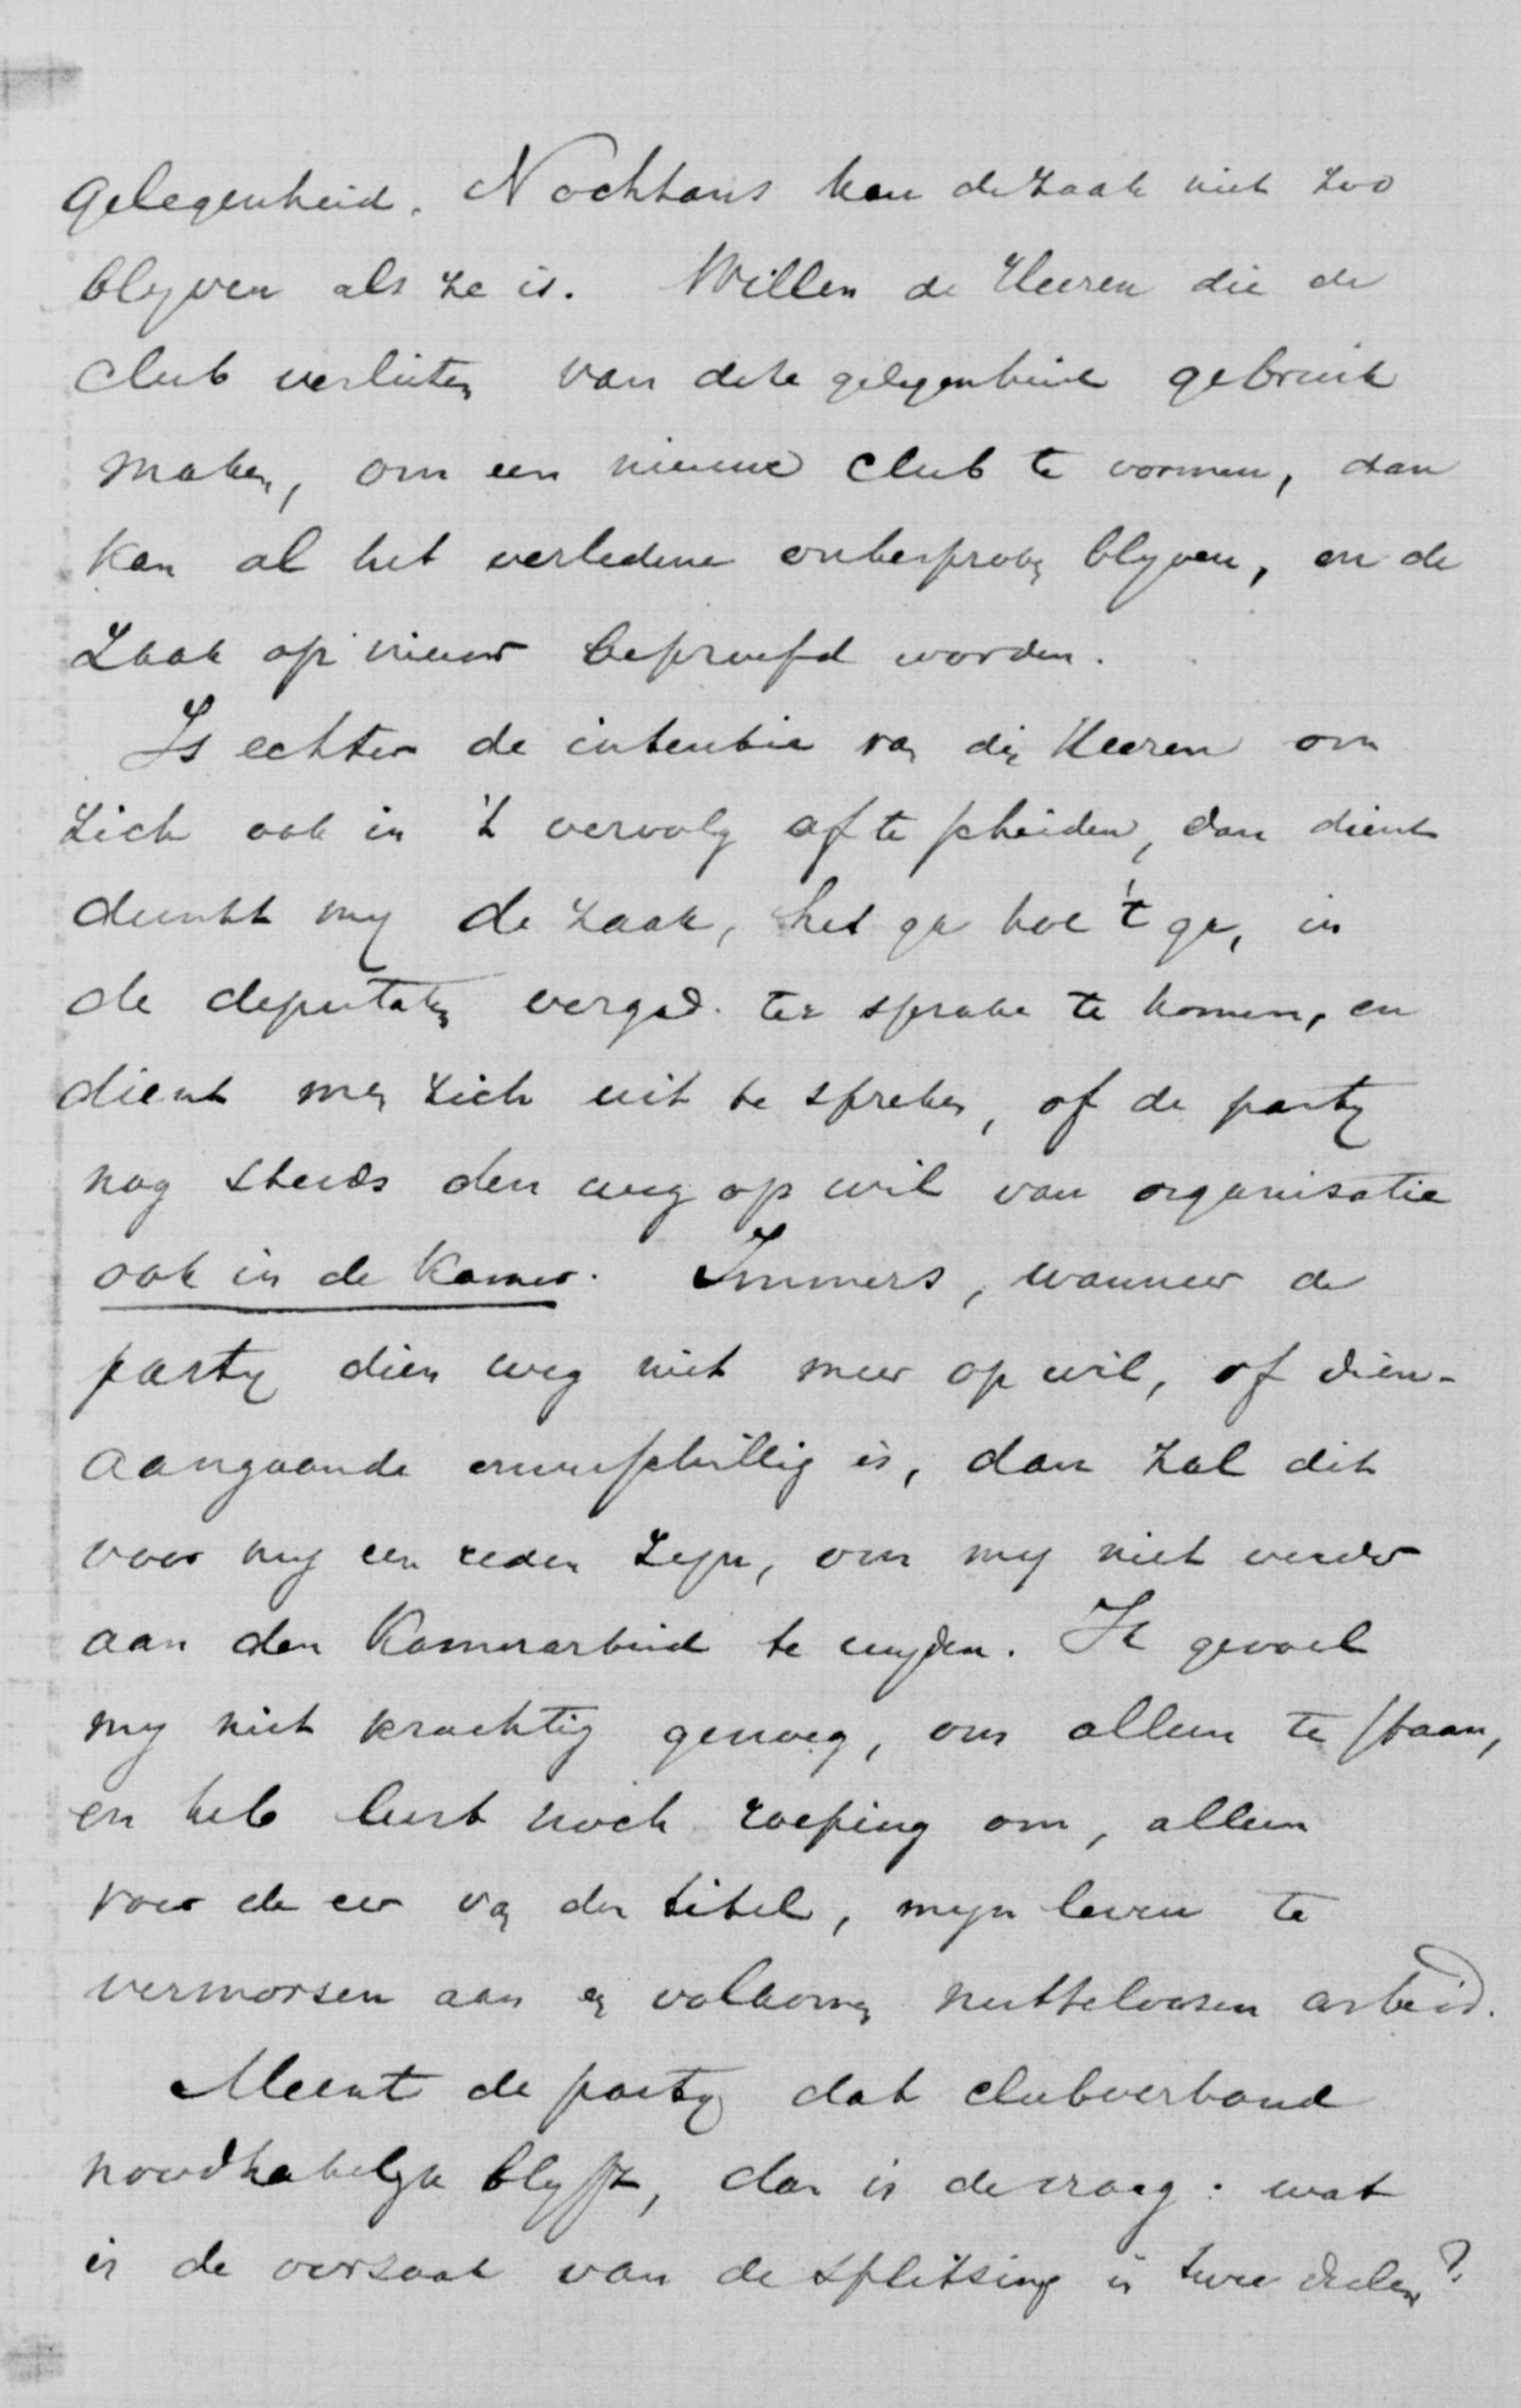 gelegenheid. Nochtans kan de zaak niet zoo
blyven als ze is. Willen de Heeren die de
club verlieten van deze gelegenheid gebruik
maken, om een nieuwe club te vormen, dan
kan al het verledene onbesproken blyven, en de
zaak op nieuw beproefd worden.
Is echter de intentie van die Heeren om
zich ook in 't vervolg af te scheiden, dan dient
dunkt my de zaak, het ga hoe 't ga, in
de deputaten vergad. ter sprake te komen, en
dient men zich uit te spreken, of de party
nog steeds den weg op wil van organisatie
ook in de Kamer. Immers, wanneer de
party dien weg niet meer op wil, of dien-
aangaande onverschillig is, dan zal dit
voor my een reden zyn, om my niet verder
aan den Kamerarbeid te wyden. Ik gevoel
my niet krachtig genoeg, om alleen te staan,
en heb lust noch roeping om, alleen
voor de eer van den titel, myn leven te
vermorsen aan een volkomen nutteloozen arbeid.
Meent de party dat clubverband
noodzakelyk blyft, dan is de vraag: wat
is de oorzaak van de splitsing in twee deelen?